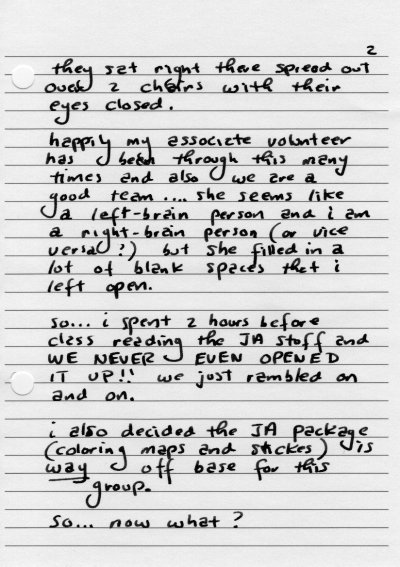 2
they sat right there spread out
over 2 chairs with their
eyes closed.
happily my associate volunteer
has been through this many
times and also we are a
good team .... she seems like
a left-brain person and i am
a right-brain person (or vice
versa?) but she filled in a
lot of blank spaces that i
left open.
so... i spent 2 hours before
class reading the JA stuff and
WE NEVER EVEN OPENED
IT UP!! we just rambled on
and on.
i also decided the JA package
(coloring maps and stickes) is
way off base for this
group.
so... now what?